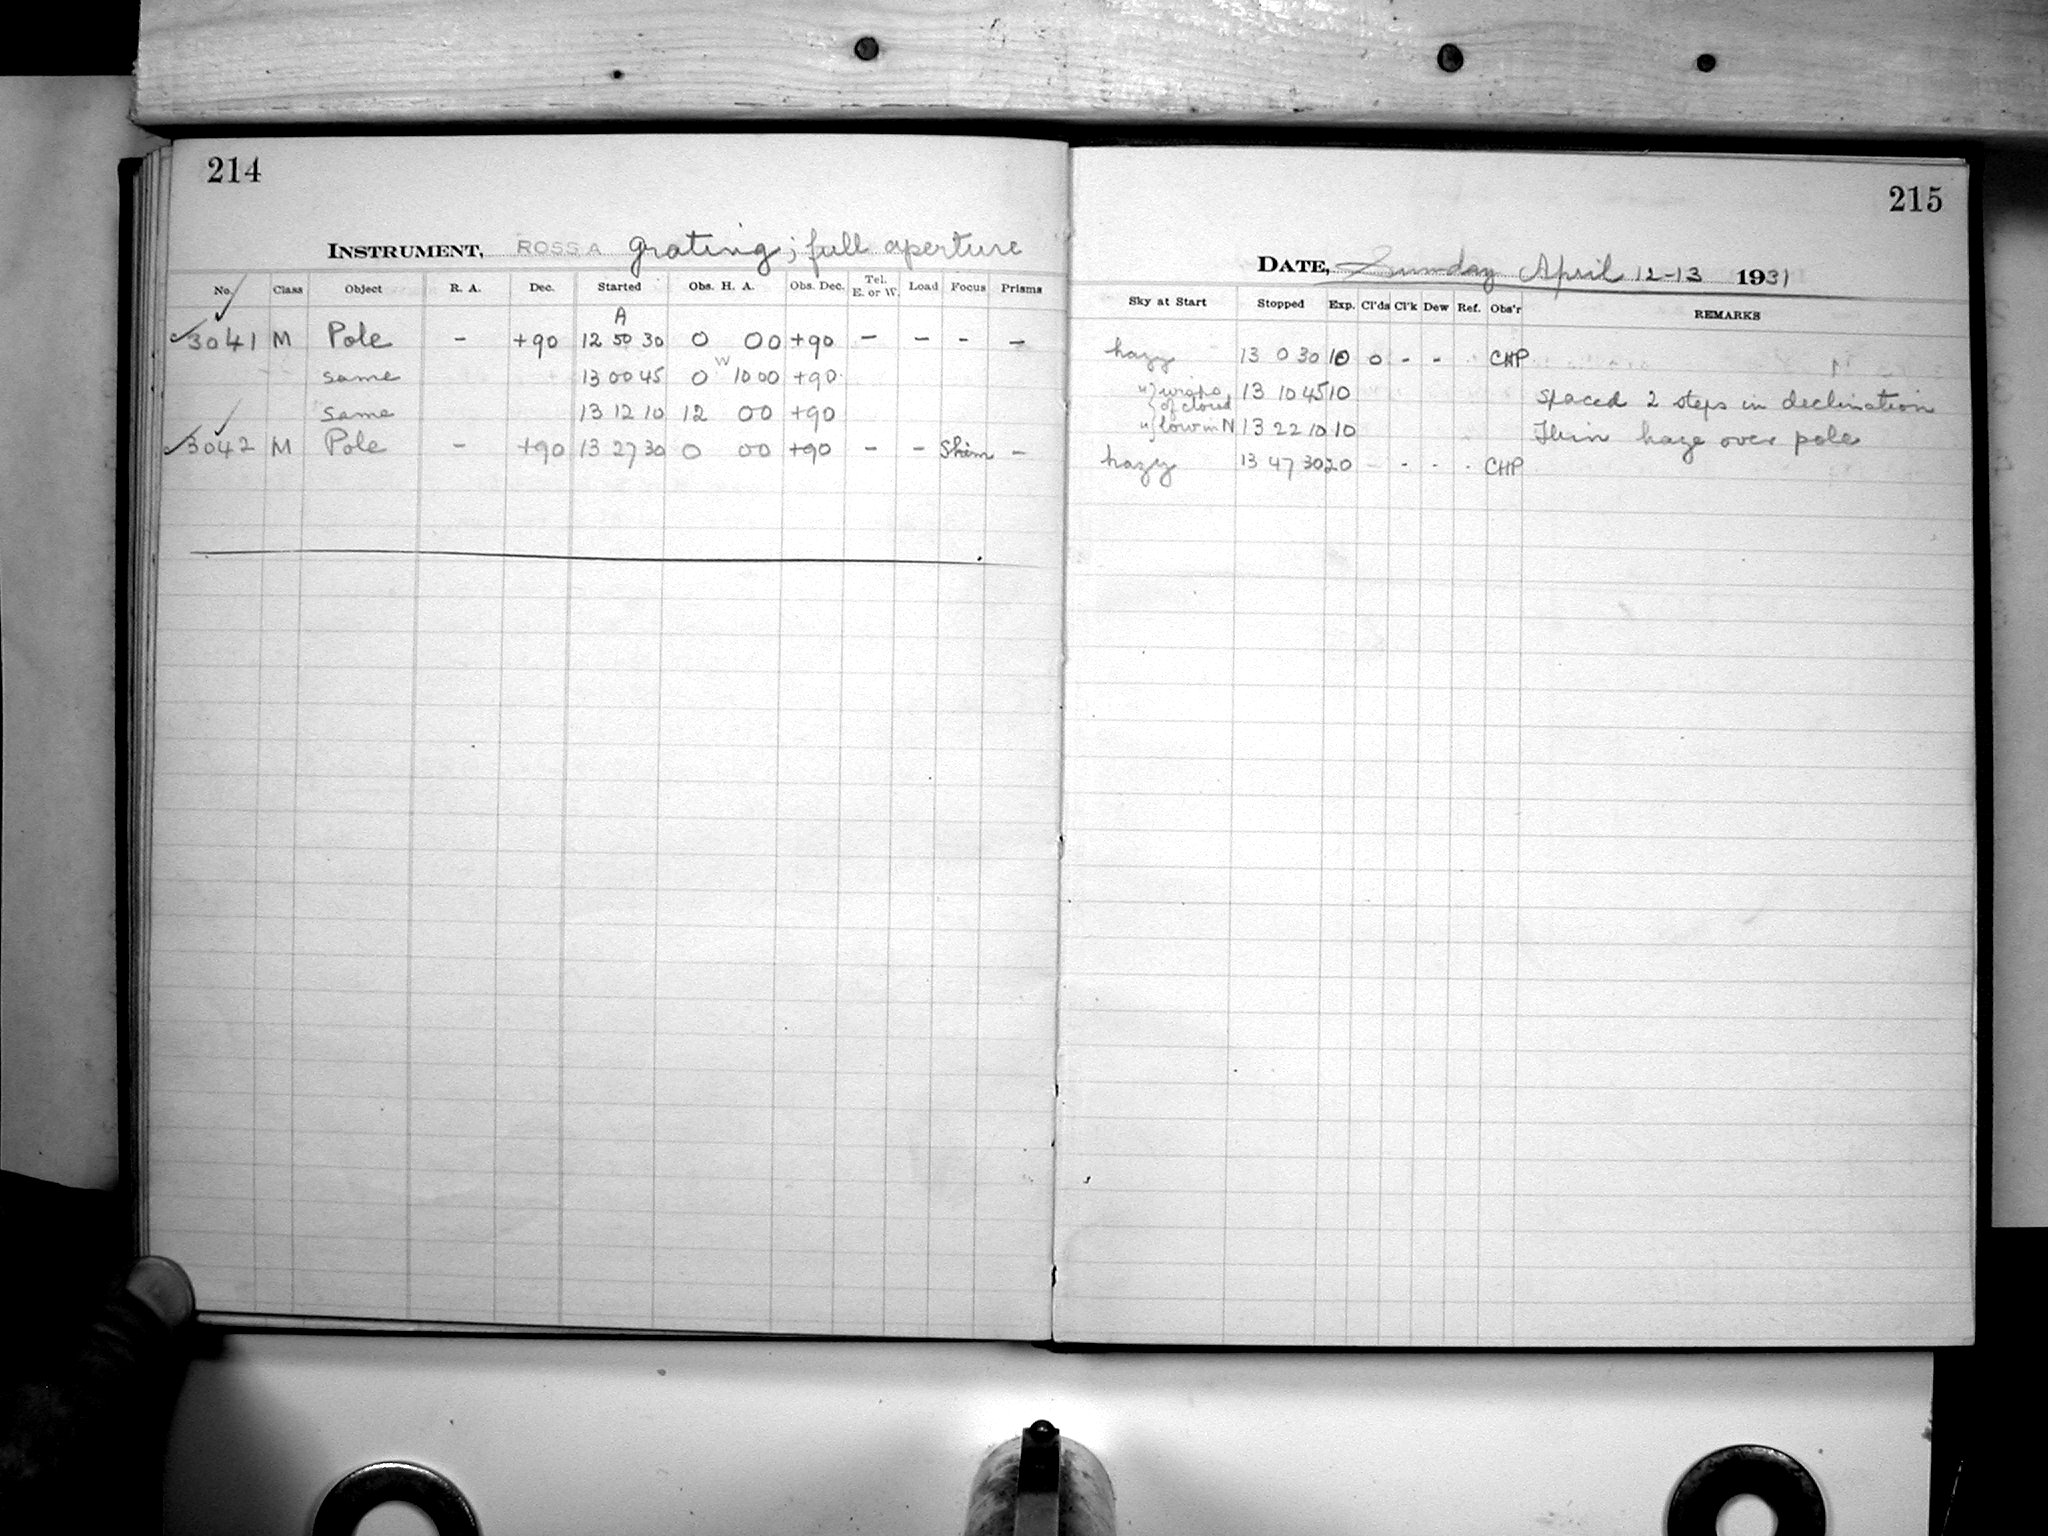 214
INSTRUMENT, ROSS A grating; full aperture
No. Class Object R. A. Dec. Started Obs. H. A. Obs. Dec. Tel. E. or W. Load Focus Prisms
A
3041 M Pole - +90 12 50 30 0 00 +90 - - - -
same 13 00 45 0 W 10 00 +90
same 13 12 10 12 00 +90
3042 M Pole - +90 13 27 30 0 00 +90 - - Shim -
215
DATE, Sunday April 12-13 1931
Sky at Start Stopped Exp. Cl'ds Cl'k Dew Ref. Obs'r REMARKS
hazy 13 0 30 10 0 - - CHP
" wisps of cloud 13 10 45 10 Spaced 2 steps in declination
" low in N 13 22 10 10 Thin haze over pole
hazy 13 47 30 20 - - - CHP